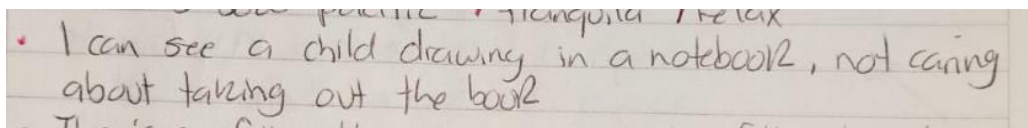 tranquila / relax
• I can see a child drawing in a notebook, not caring
about taking out the book